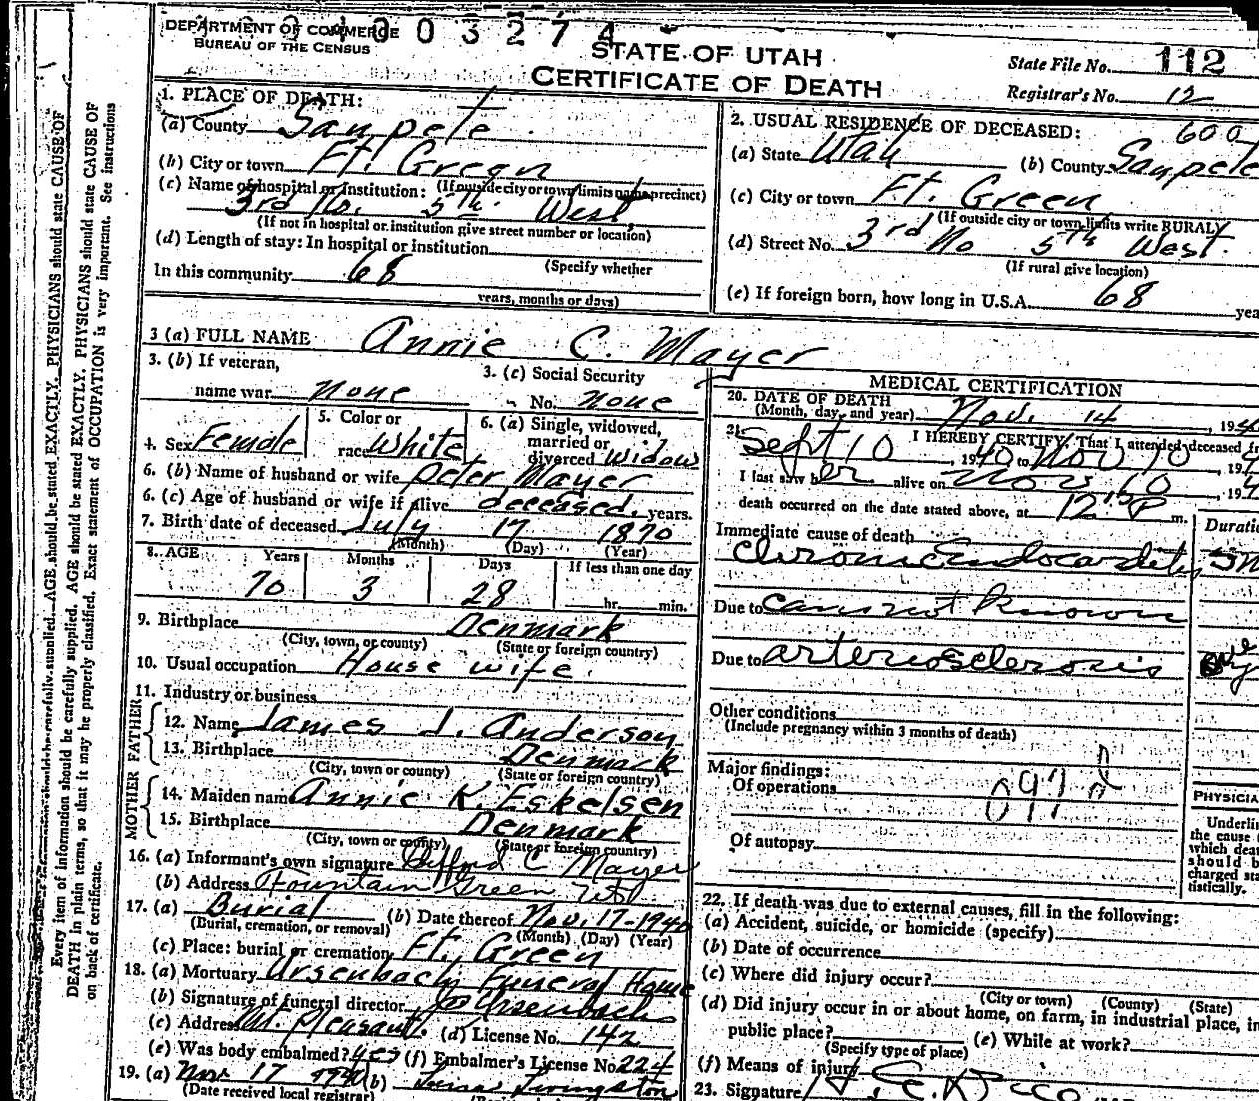 DEPARTMENT OF COMMERCE
BUREAU OF THE CENSUS
STATE OF UTAH
CERTIFICATE OF DEATH
State File No. 112
Registrar's No. 12
1. PLACE OF DEATH:
(a) County Sanpete
(b) City or town Ft. Green
(c) Name of hospital or institution: (If outside city or town limits name precinct)
3rd No. 5th West
(If not in hospital or institution give street number or location)
(d) Length of stay: In hospital or institution
(Specify whether
In this community 68
years, months or days)
2. USUAL RESIDENCE OF DECEASED: 600
(a) State Utah (b) County Sanpete
(c) City or town Ft. Green
(If outside city or town limits write RURAL)
(d) Street No. 3rd No 5th West
(If rural give location)
(e) If foreign born, how long in U.S.A. 68 yea
3 (a) FULL NAME Annie C. Mayer
3. (b) If veteran,
name war none
3. (c) Social Security
No. none
4. Sex Female
5. Color or
race White
6. (a) Single, widowed,
married or
divorced widow
6. (b) Name of husband or wife Peter Mayer
6. (c) Age of husband or wife if alive deceased years.
7. Birth date of deceased July 17 1870
(Month) (Day) (Year)
8. AGE Years Months Days If less than one day
70 3 28 hr. min.
9. Birthplace Denmark
(City, town, or county) (State or foreign country)
10. Usual occupation House wife
11. Industry or business
FATHER
12. Name James J. Anderson
13. Birthplace Denmark
(City, town or county) (State or foreign country)
MOTHER
14. Maiden name Annie K. Eskelsen
15. Birthplace Denmark
(City, town or county) (State or foreign country)
16. (a) Informant's own signature C. Mayer
(b) Address Fountain Green Ut
17. (a) Burial (b) Date thereof Nov. 17-1940
(Burial, cremation, or removal) (Month) (Day) (Year)
(c) Place: burial or cremation Ft. Green
18. (a) Mortuary Ursenbach Funeral Home
(b) Signature of funeral director Ursenbach
(c) Address Mt. Pleasant. (d) License No. 142
(e) Was body embalmed? yes (f) Embalmer's License No. 224
19. (a) Nov 17 1940 (b) Livingston
(Date received local registrar)
MEDICAL CERTIFICATION
20. DATE OF DEATH
(Month, day, and year) Nov. 14, 194
21. I HEREBY CERTIFY, That I attended deceased
Sept 10, 1940 to Nov 10, 194
I last saw her alive on Nov 10, 194
death occurred on the date stated above, at 12 P m.
Duratio
Immediate cause of death
Chronic Endocarditis
Due to cause not known
Due to arteriosclerosis
Other conditions
(Include pregnancy within 3 months of death)
Major findings:
Of operations
Of autopsy
PHYSICIA
Underlin
the cause
which deat
should b
charged sta
tistically.
22. If death was due to external causes, fill in the following:
(a) Accident, suicide, or homicide (specify)
(b) Date of occurrence
(c) Where did injury occur?
(City or town) (County) (State)
(d) Did injury occur in or about home, on farm, in industrial place, in
public place? (e) While at work?
(Specify type of place)
(f) Means of injury
23. Signature
Every item of information should be carefully supplied. AGE should be stated EXACTLY. PHYSICIANS should state CAUSE OF
DEATH in plain terms, so that it may be properly classified. Exact statement of OCCUPATION is very important. See instructions
on back of certificate.